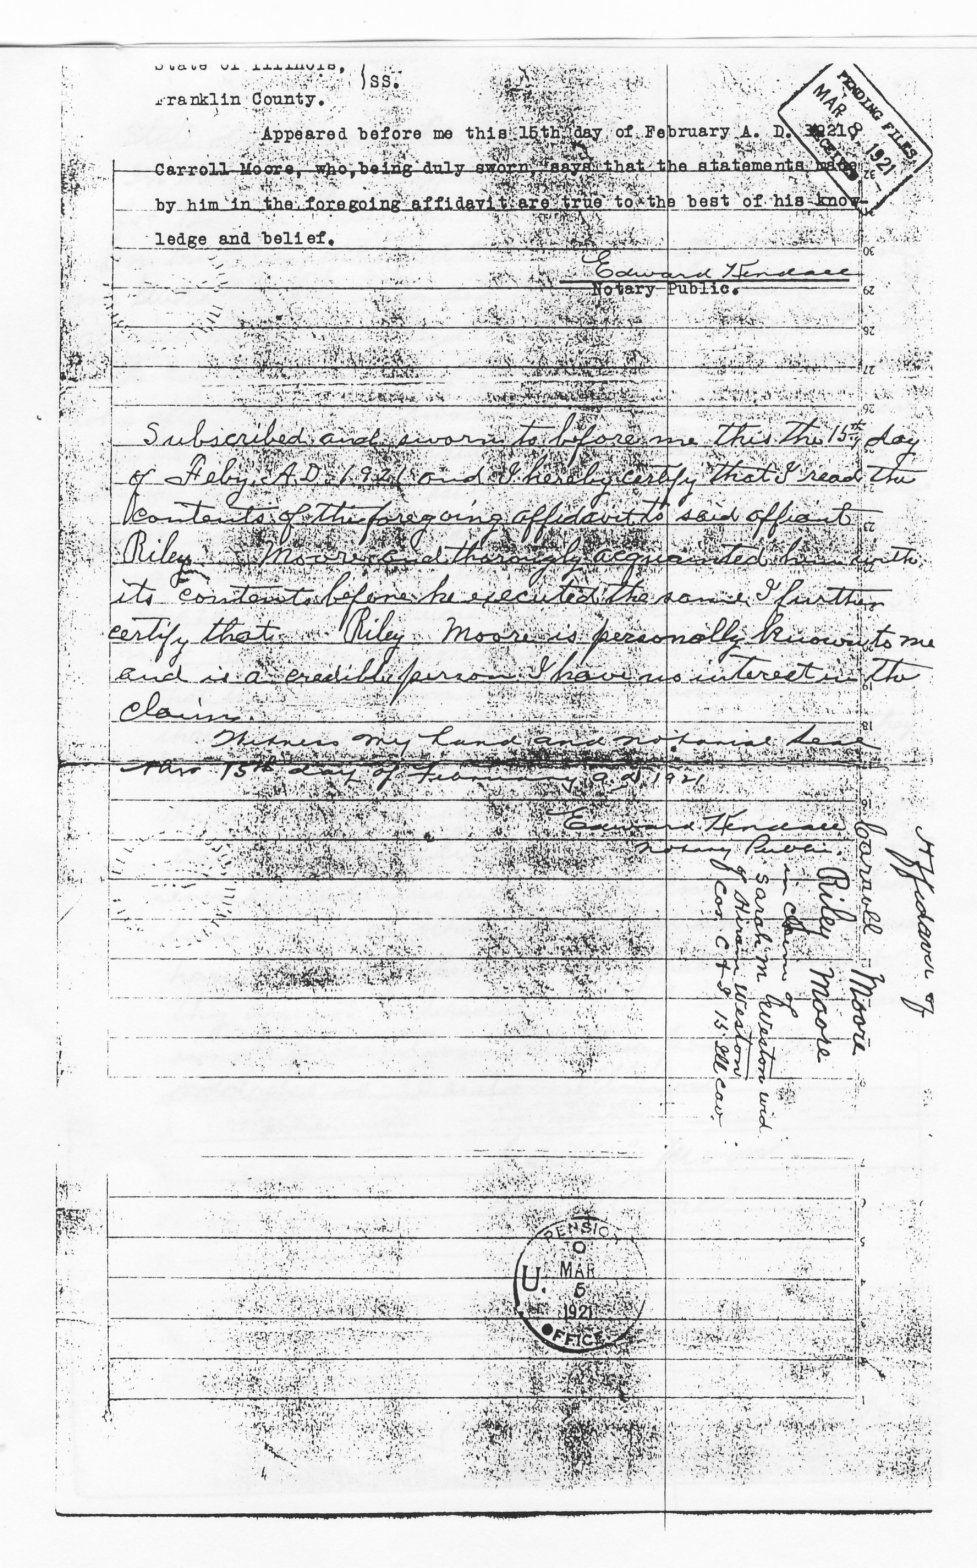 State of Illinois,
)SS.
Franklin County.
Appeared before me this 15th day of February A. D. 1921,
Carroll Moore, who, being duly sworn, says that the statements made
by him in the foregoing affidavit are true to the best of his know-
ledge and belief.
Edward Kendall
Notary Public.
PENDING FILES
MAR 8 1921
RECEIVED
Subscribed and sworn to before me this the 15th day
of Feby, A.D. 1921 and I hereby certify that I read the
contents of the foregoing affidavit to said affiant
Riley Moore and thoroughly acquainted him with
its contents before he executed the same, I further
certify that Riley Moore is personally known to me
and is a credible person I have no interest in the
claim.
Witness my hand and notarial seal
this 15th day of February A.D. 1921
Edward Kendall
Notary Public
Affidavit of
Carroll Moore
Riley Moore
in claim of
Sarah M Weston wid
of Hiram Weston
Cor. C + I 15 Ill Cav.
U.
PENSION
MAR
5
1921
OFFICE